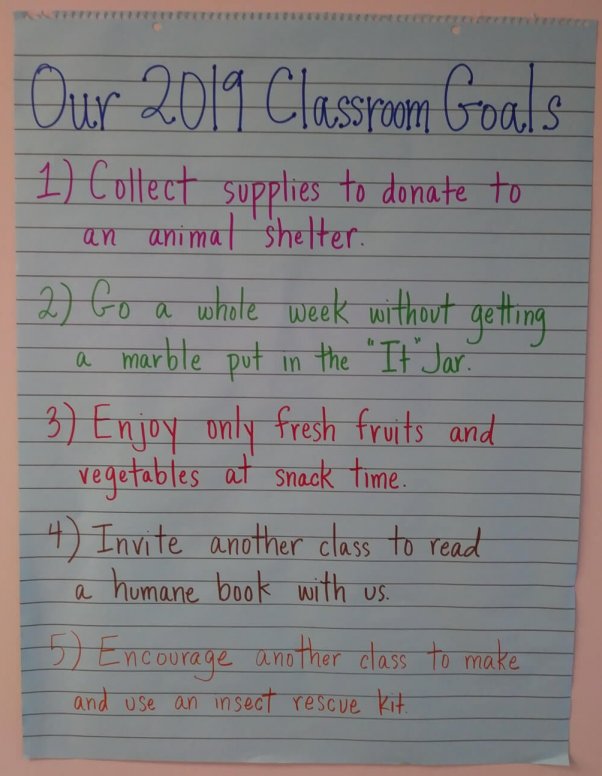 Our 2019 Classroom Goals
1) Collect supplies to donate to
an animal shelter.
2) Go a whole week without getting
a marble put in the "It" Jar.
3) Enjoy only fresh fruits and
vegetables at snack time.
4) Invite another class to read
a humane book with us.
5) Encourage another class to make
and use an insect rescue kit.